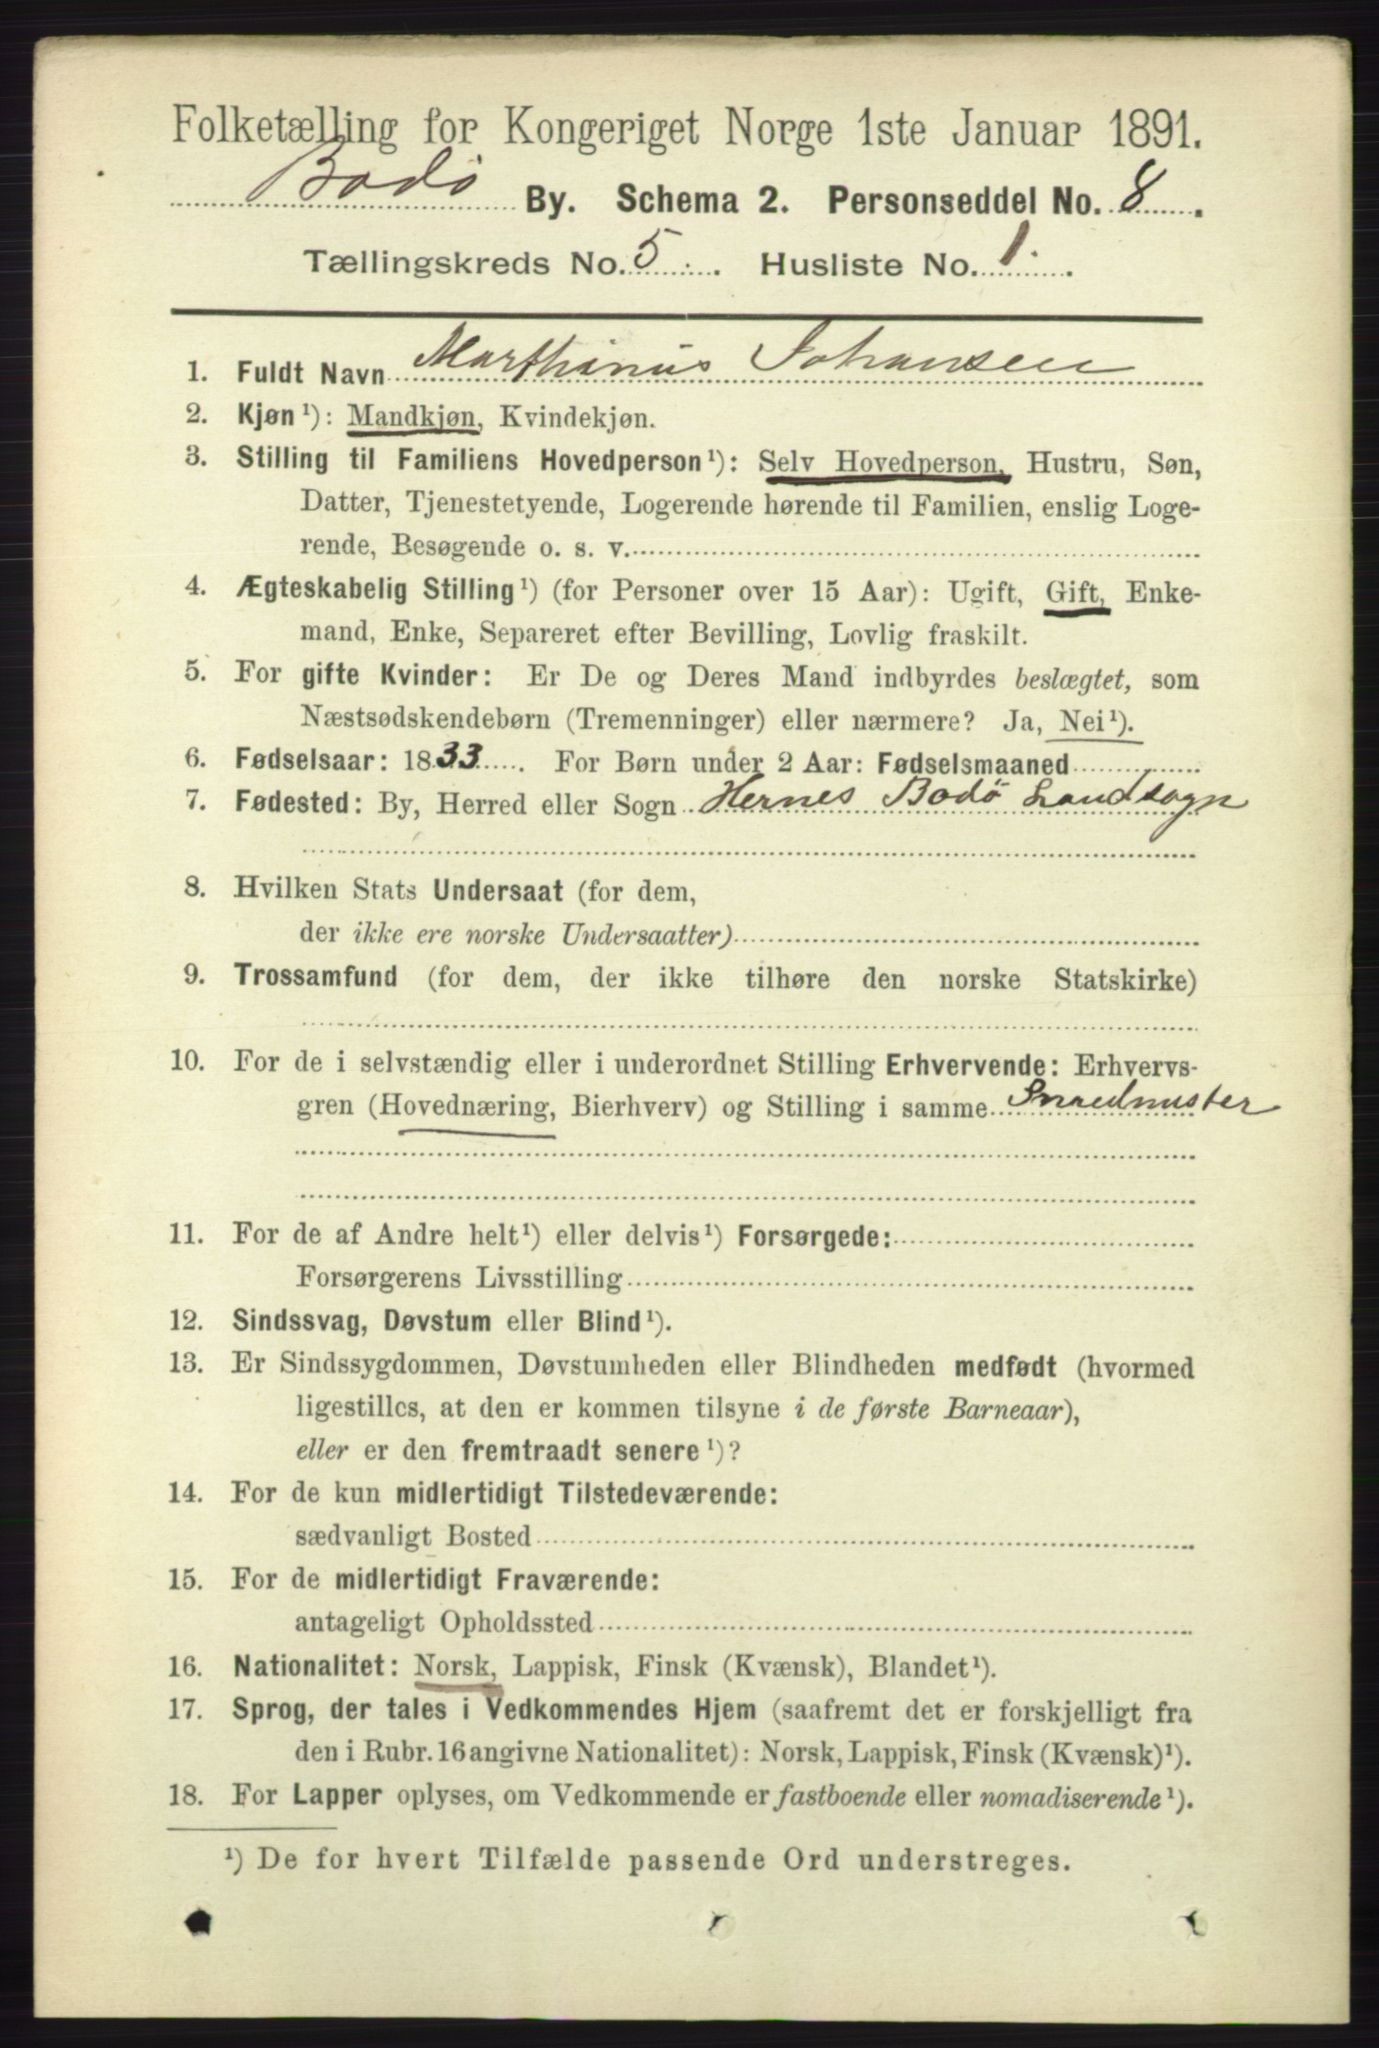 Folketælling for Kongeriget Norge 1ste Januar 1891.
Bodö By. Schema 2. Personseddel No. 8.
Tællingskreds No. 5. Husliste No. 1.
1. Fuldt Navn Marthinus Johansen
2. Kjøn¹): Mandkjøn, Kvindekjøn.
3. Stilling til Familiens Hovedperson¹): Selv Hovedperson, Hustru, Søn,
Datter, Tjenestetyende, Logerende hørende til Familien, enslig Loge-
rende, Besøgende o. s. v.
4. Ægteskabelig Stilling¹) (for Personer over 15 Aar): Ugift, Gift, Enke-
mand, Enke, Separeret efter Bevilling, Lovlig fraskilt.
5. For gifte Kvinder: Er De og Deres Mand indbyrdes beslægtet, som
Næstsødskendebørn (Tremenninger) eller nærmere? Ja, Nei¹).
6. Fødselsaar: 1833. For Børn under 2 Aar: Fødselsmaaned
7. Fødested: By, Herred eller Sogn Hernes Bodö Landsogn
8. Hvilken Stats Undersaat (for dem,
der ikke ere norske Undersaatter)
9. Trossamfund (for dem, der ikke tilhøre den norske Statskirke)
10. For de i selvstændig eller i underordnet Stilling Erhvervende: Erhvervs-
gren (Hovednæring, Bierhverv) og Stilling i samme Smedmester
11. For de af Andre helt¹) eller delvis¹) Forsørgede:
Forsørgerens Livsstilling
12. Sindssvag, Døvstum eller Blind¹).
13. Er Sindssygdommen, Døvstumheden eller Blindheden medfødt (hvormed
ligestilles, at den er kommen tilsyne i de første Barneaar),
eller er den fremtraadt senere¹)?
14. For de kun midlertidigt Tilstedeværende:
sædvanligt Bosted
15. For de midlertidigt Fraværende:
antageligt Opholdssted
16. Nationalitet: Norsk, Lappisk, Finsk (Kvænsk), Blandet¹).
17. Sprog, der tales i Vedkommendes Hjem (saafremt det er forskjelligt fra
den i Rubr. 16 angivne Nationalitet): Norsk, Lappisk, Finsk (Kvænsk)¹).
18. For Lapper oplyses, om Vedkommende er fastboende eller nomadiserende¹).
¹) De for hvert Tilfælde passende Ord understreges.